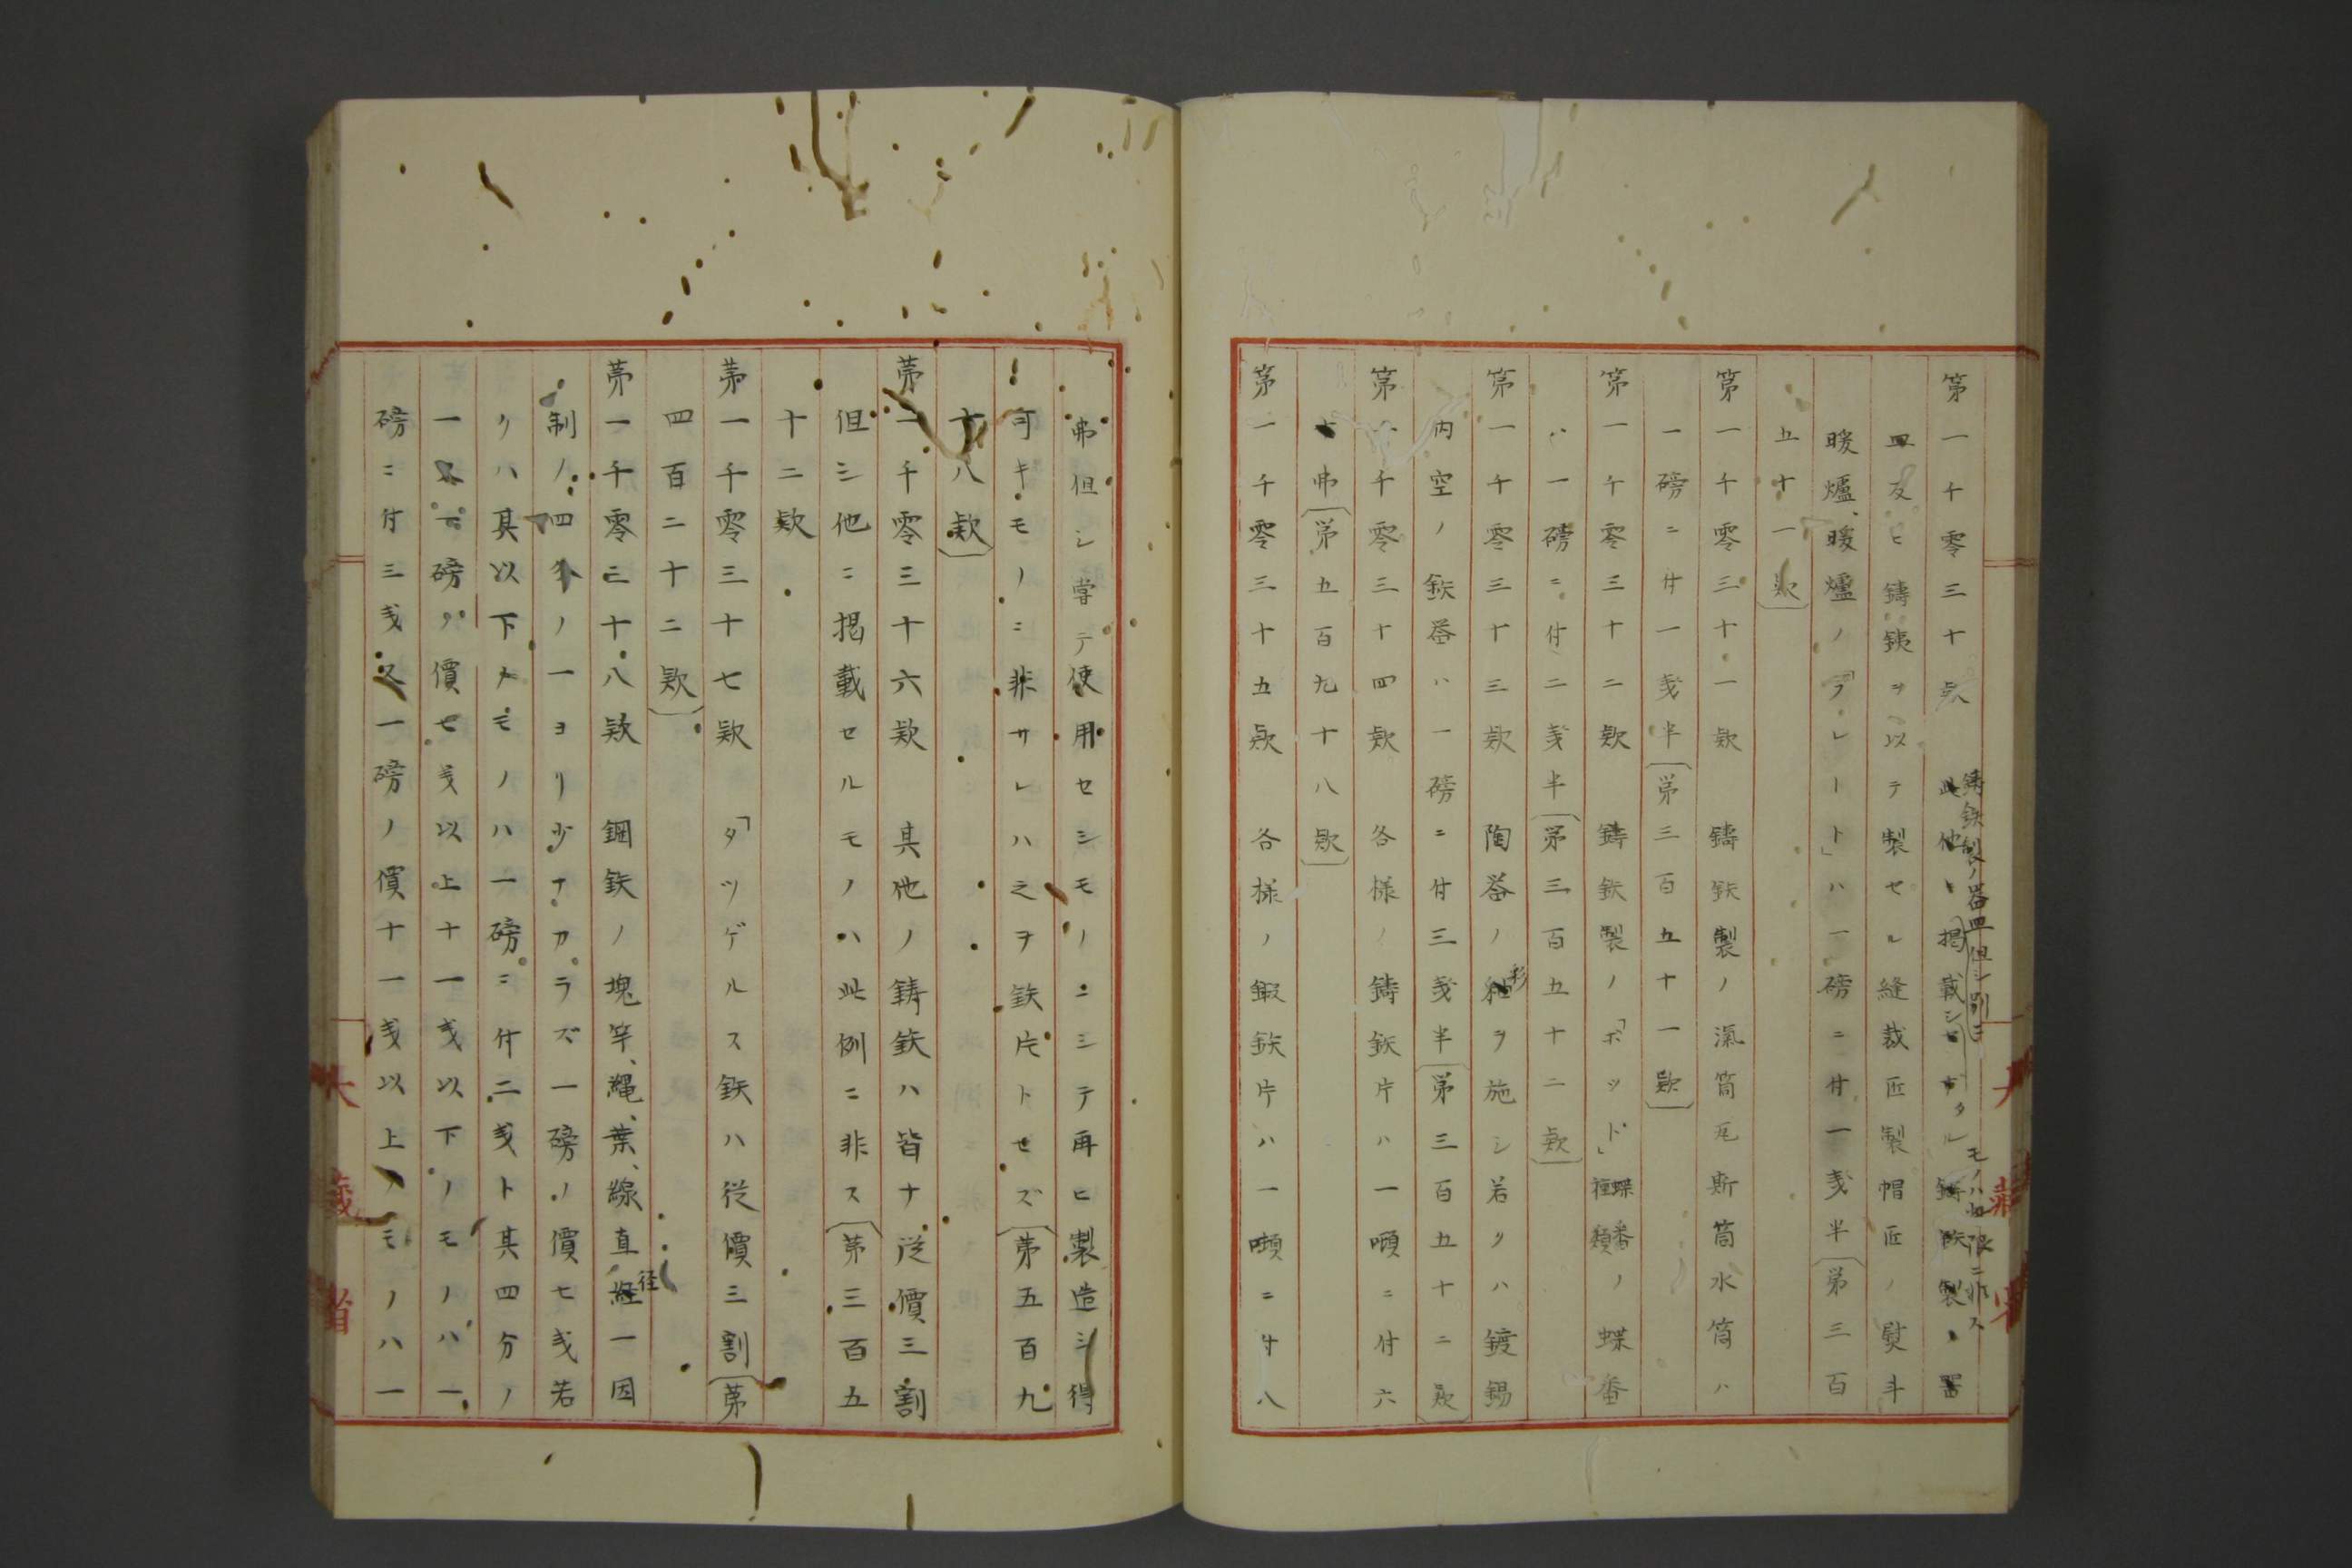 第一千零三十欵 此他ニ掲載シセザル鋳鉄製ノ器
鋳鉄製ノ器皿但シ別ニ
モノハ此限ニ非ス
皿及ヒ鑄鉄ヲ以テ製セル縫裁匠製帽匠ノ熨斗
暖爐、暖爐ノ「プレート」ハ一磅ニ付一戔半(第三百
五十一欵)
第一千零三十一欵 鑄鉄製ノ瀛筒瓦斯筒水筒ハ
一磅ニ付一戔半(第三百五十一欵)
第一千零三十二欵 鑄鉄製ノ「ボツド」蝶番種類ノ蝶番
ハ一磅ニ付二戔半(第三百五十二欵)
第一千零三十三欵 陶器ノ彩ヲ施シ若クハ鍍錫
内空ノ鉄器ハ一磅ニ付三戔半(第三百五十二欵)
第一千零三十四欵 各様ノ鑄鉄片ハ一噸ニ付六
弗(第五百九十八欵)
第一千零三十五欵 各様ノ鍛鉄片ハ一噸ニ付八
弗但シ嘗テ使用セシモノニシテ再ヒ製造シ得
可キモノニ非サレハ之ヲ鉄片トセズ(第五百九
十八欵)
第一千零三十六欵 其他ノ鋳鉄ハ皆ナ従價三割
但シ他ニ掲載セルモノハ此例ニ非ス(第三百五
十二欵
第一千零三十七欵 「タツゲルス鉄ハ従價三割(第
四百二十二欵)
第一千零三十八欵 鋼鉄ノ塊竿、縄、葉、線直径一因
制ノ四分ノ一ヨリ少ナカラズ一磅ノ價七戔若
クハ其以下ナモノハ一磅ニ付二戔ト其四分ノ
一又一磅ノ價七戔以上十一戔以下ノモノハ一
磅ニ付三戔又一磅ノ價十一戔以上ノモノハ一
大蔵省